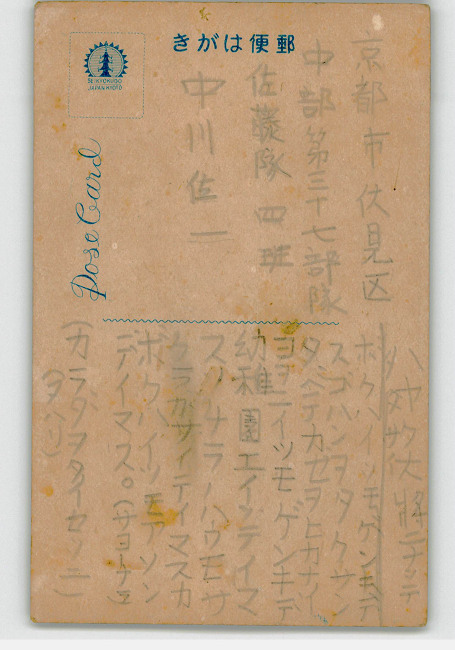 郵便はがき
SEIKYOKUDO
JAPAN KYOTO
Pose Card
京都市伏見区
中部第三十七部隊
佐藤隊四班
中川佐一
ハヤク大将ニナッテ
ボクハイツモゲンキデ
スゴハンヲタクサン
タベテカゼヲヒカナイ
ヨヲニイツモゲンキデ
幼稚園エイッテイマ
スソチラノハウモサ
クラガサイテイマスカ
ボクハイツモアソン
デイマス。(サヨナラ
(カラダヲタイセツニ
ヲハリ)